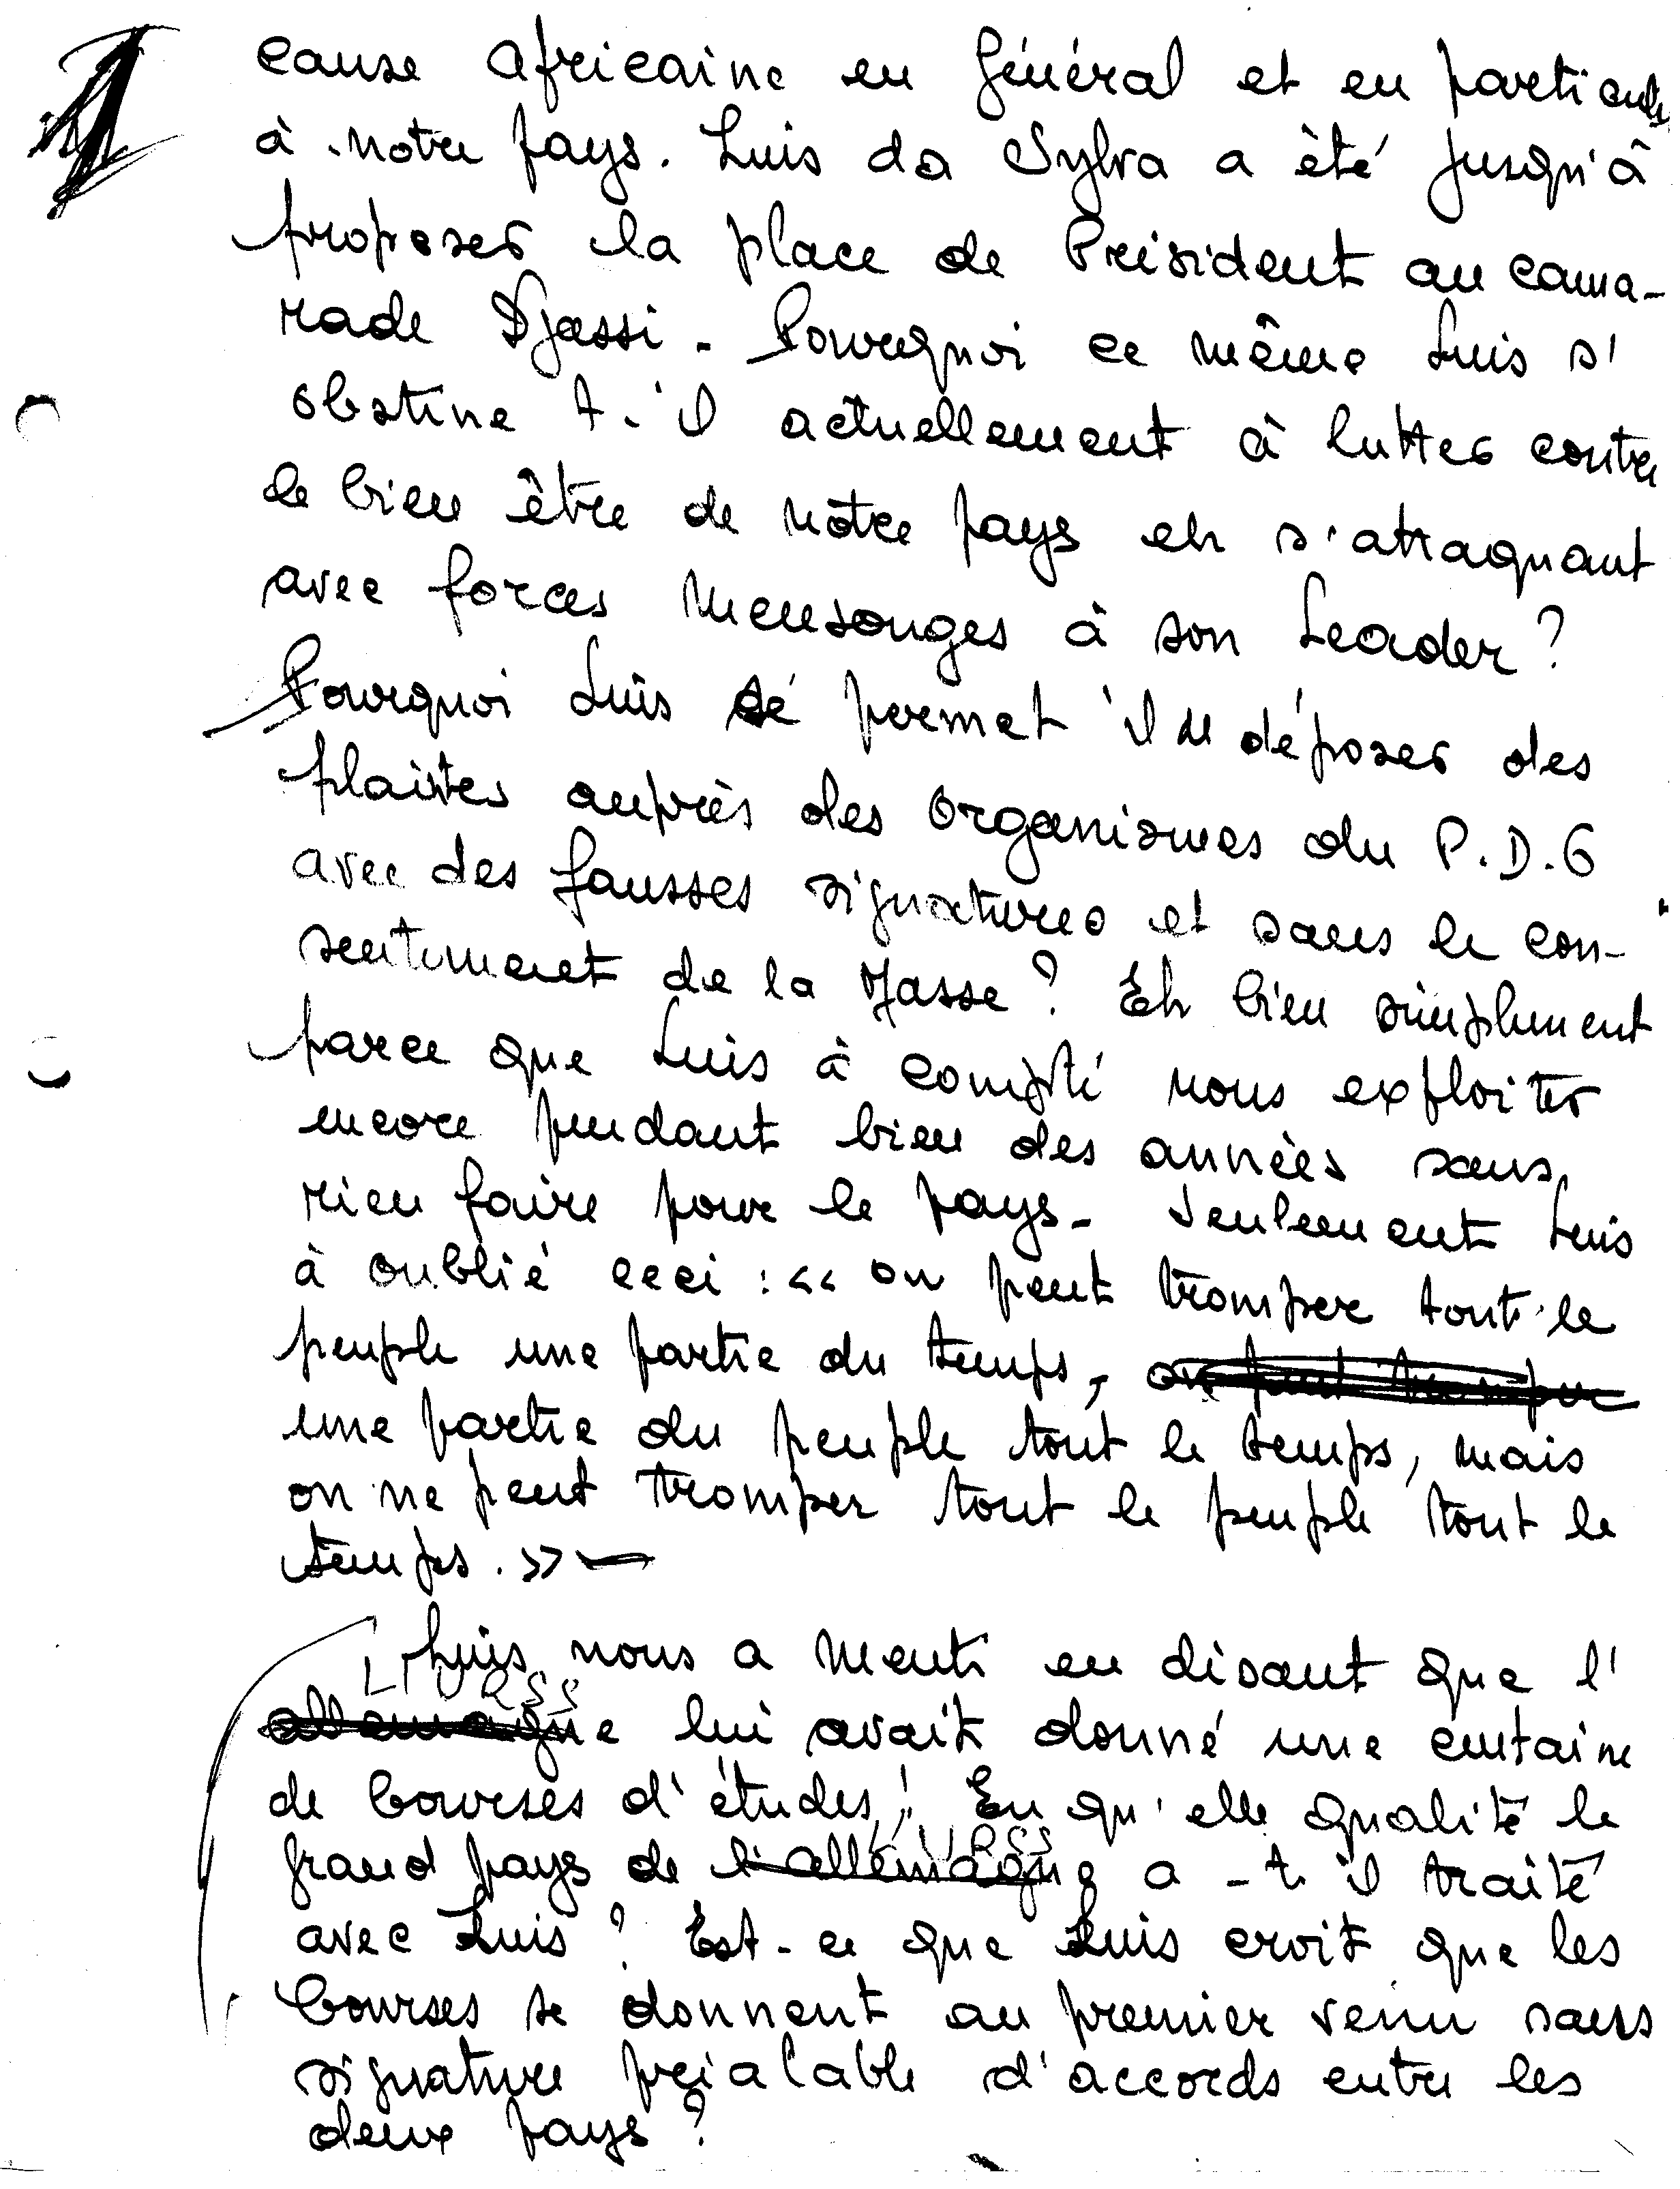 cause Africaine en Général et en particulier
à notre pays. Luis da Sylva a été jusqu'à
proposer la place de Président au cama-
rade Djassi. Pourquoi ce même Luis s'
obstine t-il actuellement à lutter contre
le bien être de nôtre pays en s'attaquant
avec forces mensonges à son Leader ?
Pourquoi Luis se permet il de déposer des
plaintes auprès des Organismes du P.D.G
avec des fausses signatures et sans le con-
sentiment de la Masse ? Eh bien simplement
parce que Luis à compté nous exploiter
encore pendant bien des années sans
rien faire pour le pays. Seulement Luis
à oublié ceci : « on peut tromper tout le
peuple une partie du temps, on peut tromper
une partie du peuple tout le temps, mais
on ne peut tromper tout le peuple tout le
temps. » —
Luis nous a menti en disant que l'
L'URSS
allemagne lui avait donné une centaine
de bourses d'études ! En qu'elle qualité le
L'URSS
grand pays de l'allemagne a-t-il traité
avec Luis ? Est-ce que Luis croit que les
bourses se donnent au premier venu sans
signature préalable d'accords entre les
deux pays ?